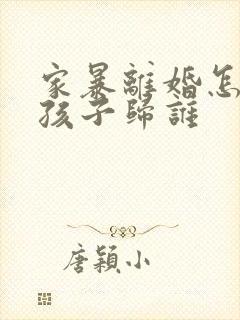 家暴離婚怎
孩子歸誰
唐穎小